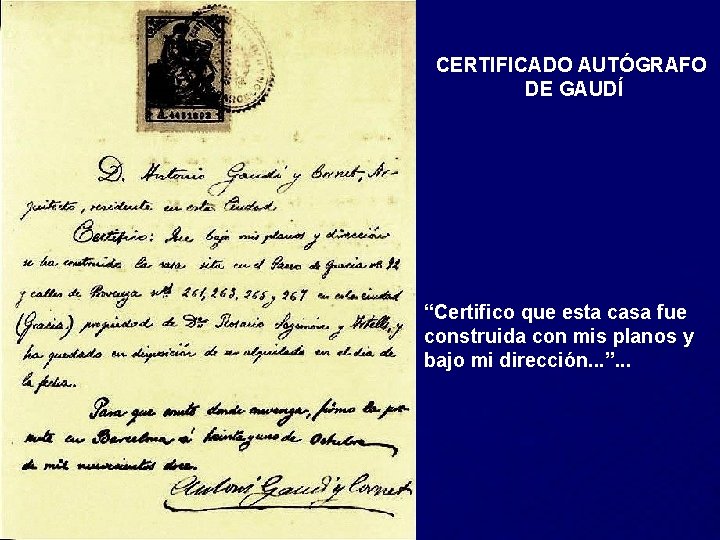 A.4431892
D. Antonio Gaudí y Cornet, Ar-
quitecto, residente en esta Ciudad.
Certifico: Que bajo mis planos y dirección
se ha construido la casa sita en el Paseo de Gracia nº 92
y calles de Provenza nºs 261, 263, 265 y 267 en esta ciudad
(Gracia) propiedad de Dña Rosario Segimón y Artells, y
ha quedado en disposición de ser alquilada en el día de
la fecha.
Para que conste donde convenga, firmo la pre-
sente en Barcelona á treinta y uno de Octubre
de mil novecientos doce.
Antoni Gaudí y Cornet
CERTIFICADO AUTÓGRAFO
DE GAUDÍ
“Certifico que esta casa fue
construida con mis planos y
bajo mi dirección...”...